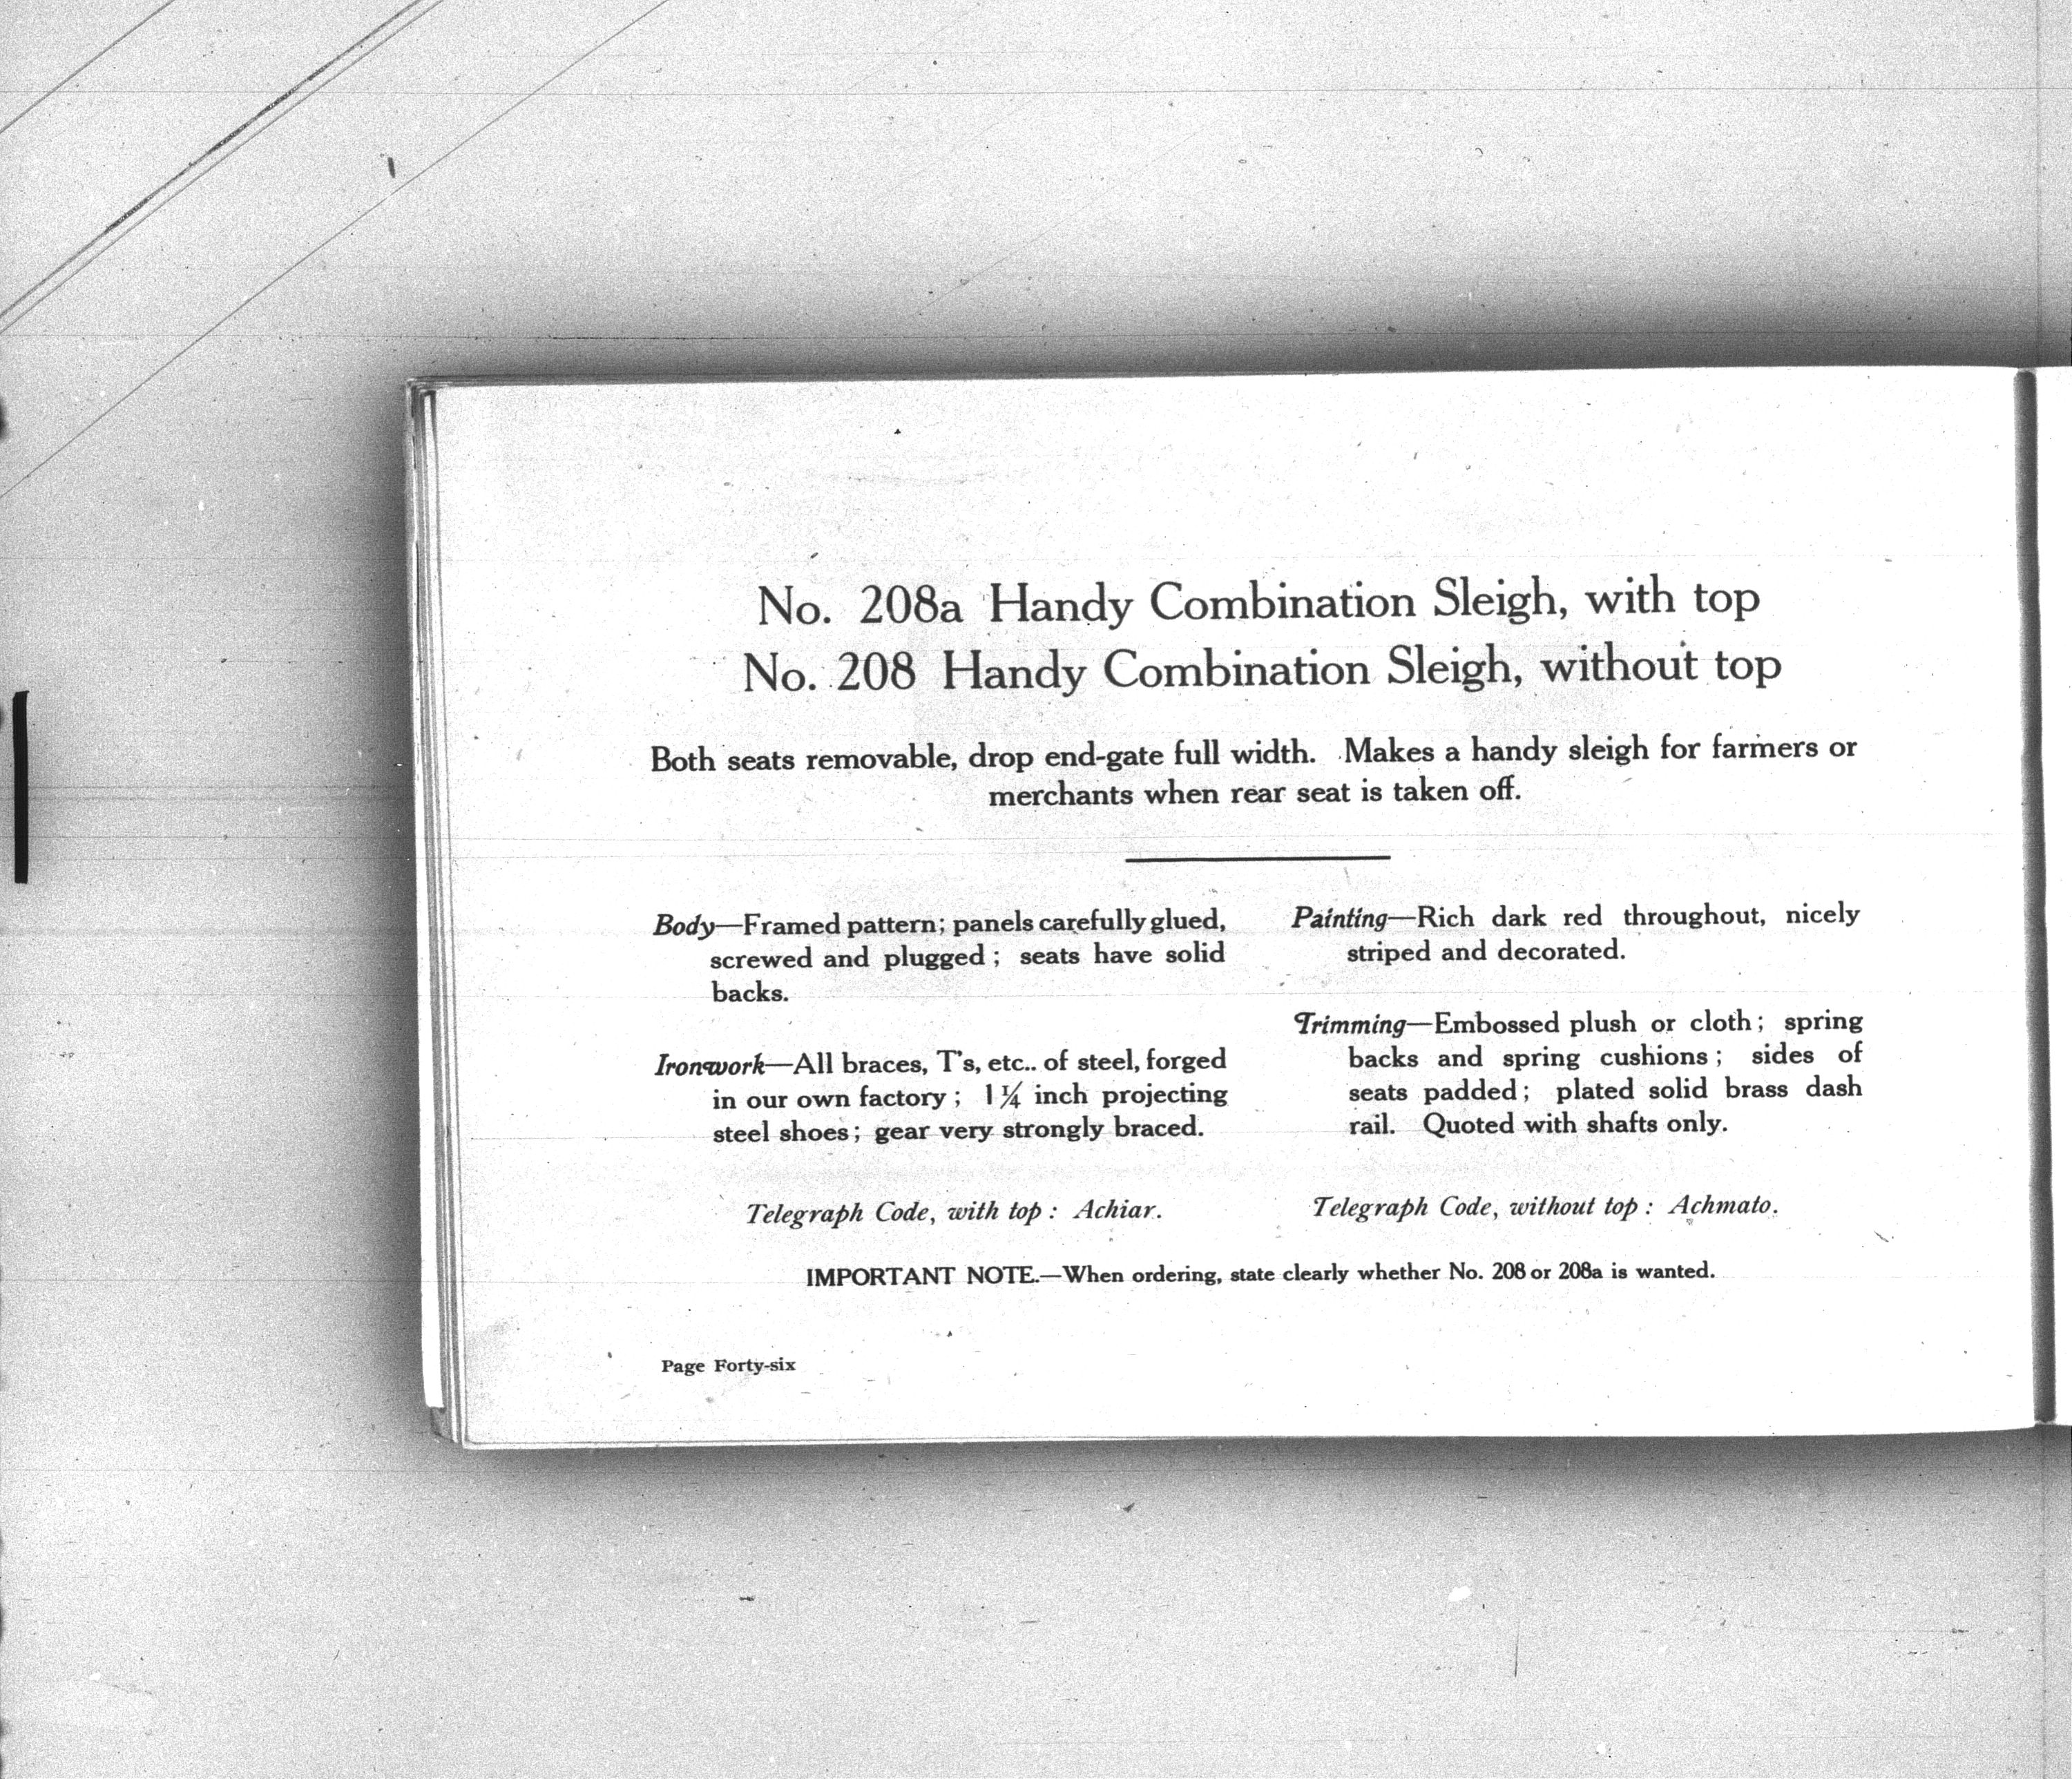 No. 208a Handy Combination Sleigh, with top
No. 208 Handy Combination Sleigh, without top
Both seats removable, drop end-gate full width. Makes a handy sleigh for farmers or
merchants when rear seat is taken off.
Body—Framed pattern; panels carefully glued,
screwed and plugged; seats have solid
backs.
Ironwork—All braces, T's, etc.. of steel, forged
in our own factory; 1¼ inch projecting
steel shoes; gear very strongly braced.
Painting—Rich dark red throughout, nicely
striped and decorated.
Trimming—Embossed plush or cloth; spring
backs and spring cushions; sides of
seats padded; plated solid brass dash
rail. Quoted with shafts only.
Telegraph Code, with top: Achiar.
Telegraph Code, without top: Achmato.
IMPORTANT NOTE.—When ordering, state clearly whether No. 208 or 208a is wanted.
Page Forty-six